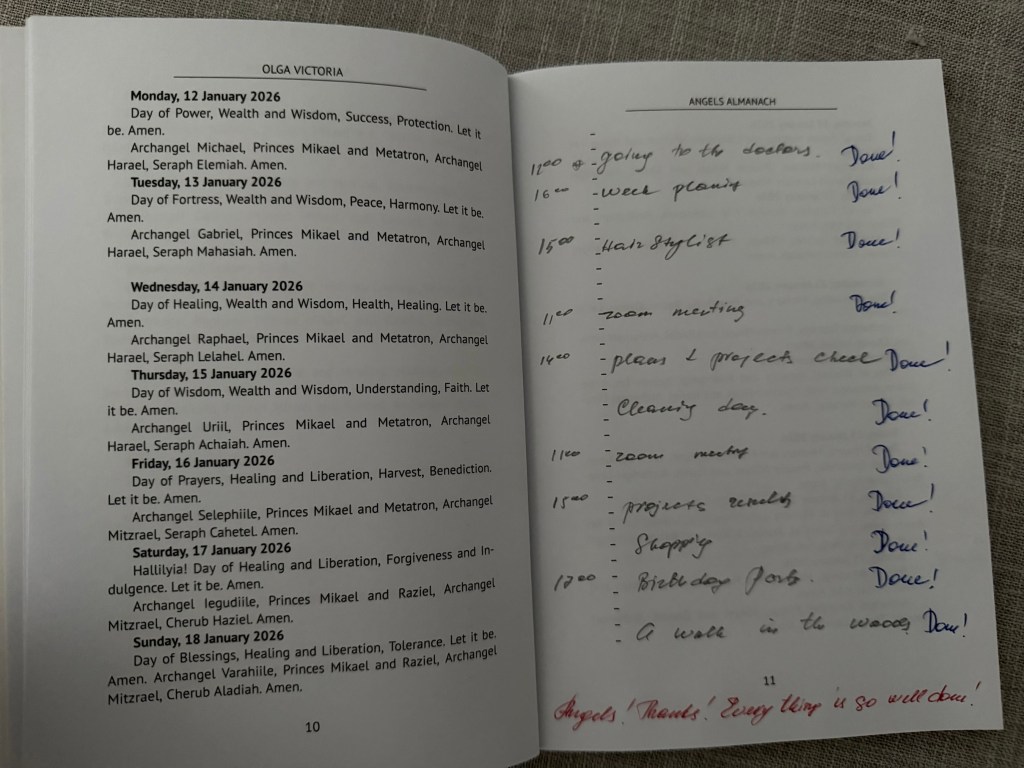 OLGA VICTORIA
Monday, 12 January 2026
Day of Power, Wealth and Wisdom, Success, Protection. Let it
be. Amen.
Archangel Michael, Princes Mikael and Metatron, Archangel
Harael, Seraph Elemiah. Amen.
Tuesday, 13 January 2026
Day of Fortress, Wealth and Wisdom, Peace, Harmony. Let it be.
Amen.
Archangel Gabriel, Princes Mikael and Metatron, Archangel
Harael, Seraph Mahasiah. Amen.
Wednesday, 14 January 2026
Day of Healing, Wealth and Wisdom, Health, Healing. Let it be.
Amen.
Archangel Raphael, Princes Mikael and Metatron, Archangel
Harael, Seraph Lelahel. Amen.
Thursday, 15 January 2026
Day of Wisdom, Wealth and Wisdom, Understanding, Faith. Let
it be. Amen.
Archangel Uriil, Princes Mikael and Metatron, Archangel
Harael, Seraph Achaiah. Amen.
Friday, 16 January 2026
Day of Prayers, Healing and Liberation, Harvest, Benediction.
Let it be. Amen.
Archangel Selephiile, Princes Mikael and Metatron, Archangel
Mitzrael, Seraph Cahetel. Amen.
Saturday, 17 January 2026
Hallilyia! Day of Healing and Liberation, Forgiveness and In-
dulgence. Let it be. Amen.
Archangel Iegudiile, Princes Mikael and Raziel, Archangel
Mitzrael, Cherub Haziel. Amen.
Sunday, 18 January 2026
Day of Blessings, Healing and Liberation, Tolerance. Let it be.
Amen. Archangel Varahiile, Princes Mikael and Raziel, Archangel
Mitzrael, Cherub Aladiah. Amen.
10
ANGELS ALMANACH
going to the doctors. Done!
16 00 - week planig Done!
15 00 - Hair Stylist Done!
11 00 zoom meeting Done!
14 00 - plans & projects check Done!
Cleanig day. Done!
11 00 zoom meeting Done!
15 00 - projects results Done!
- Shopping Done!
- Birthday Done!
- A walk in the woods Done!
11
Angels! Thanks! Everything is so well done!